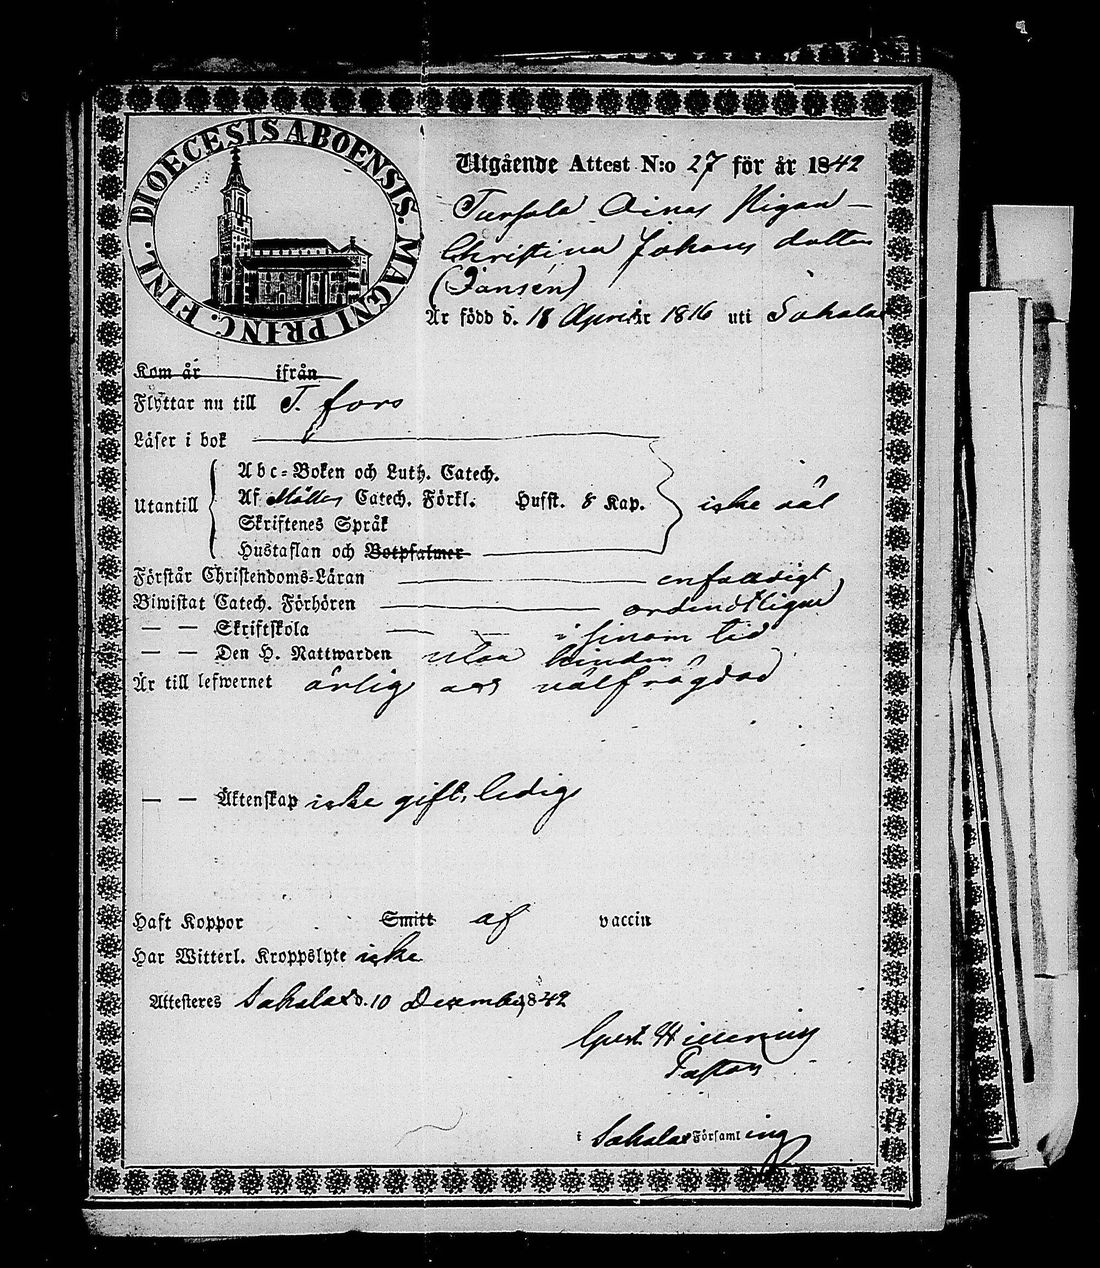 DIOECESIS ABOENSIS. MAGNI PRINC. FINL.
Utgående Attest N:o 27 för år 1842
Turpola Ainas Pigan
Christina Johans dotter
(Jansén)
Är född d. 18 April år 1816 uti Sahalax
Kom år ifrån
Flyttar nu till T. fors
Läser i bok
Abc-Boken och Luth. Catech.
Utantill Af Möllers Catech. Förkl. Husst. 8 Kap. icke väl
Skriftenes Språk
Hustaflan och Botpsalmer
Förstår Christendoms-Läran enfaldigt
Biwistat Catech. Förhören ordentligen
— — Skriftskola i sinom tid
— — Den H. Nattwarden utan hinder
Är till lefwernet ärlig och välfrägdad
— — Äktenskap icke gift, ledig
Haft Koppor Smitt af vaccin
Har Witterl. Kroppslyte icke
Attesteres Sahalax d. 10 December 1842
Gust.
Pastor
i Sahalax Församling